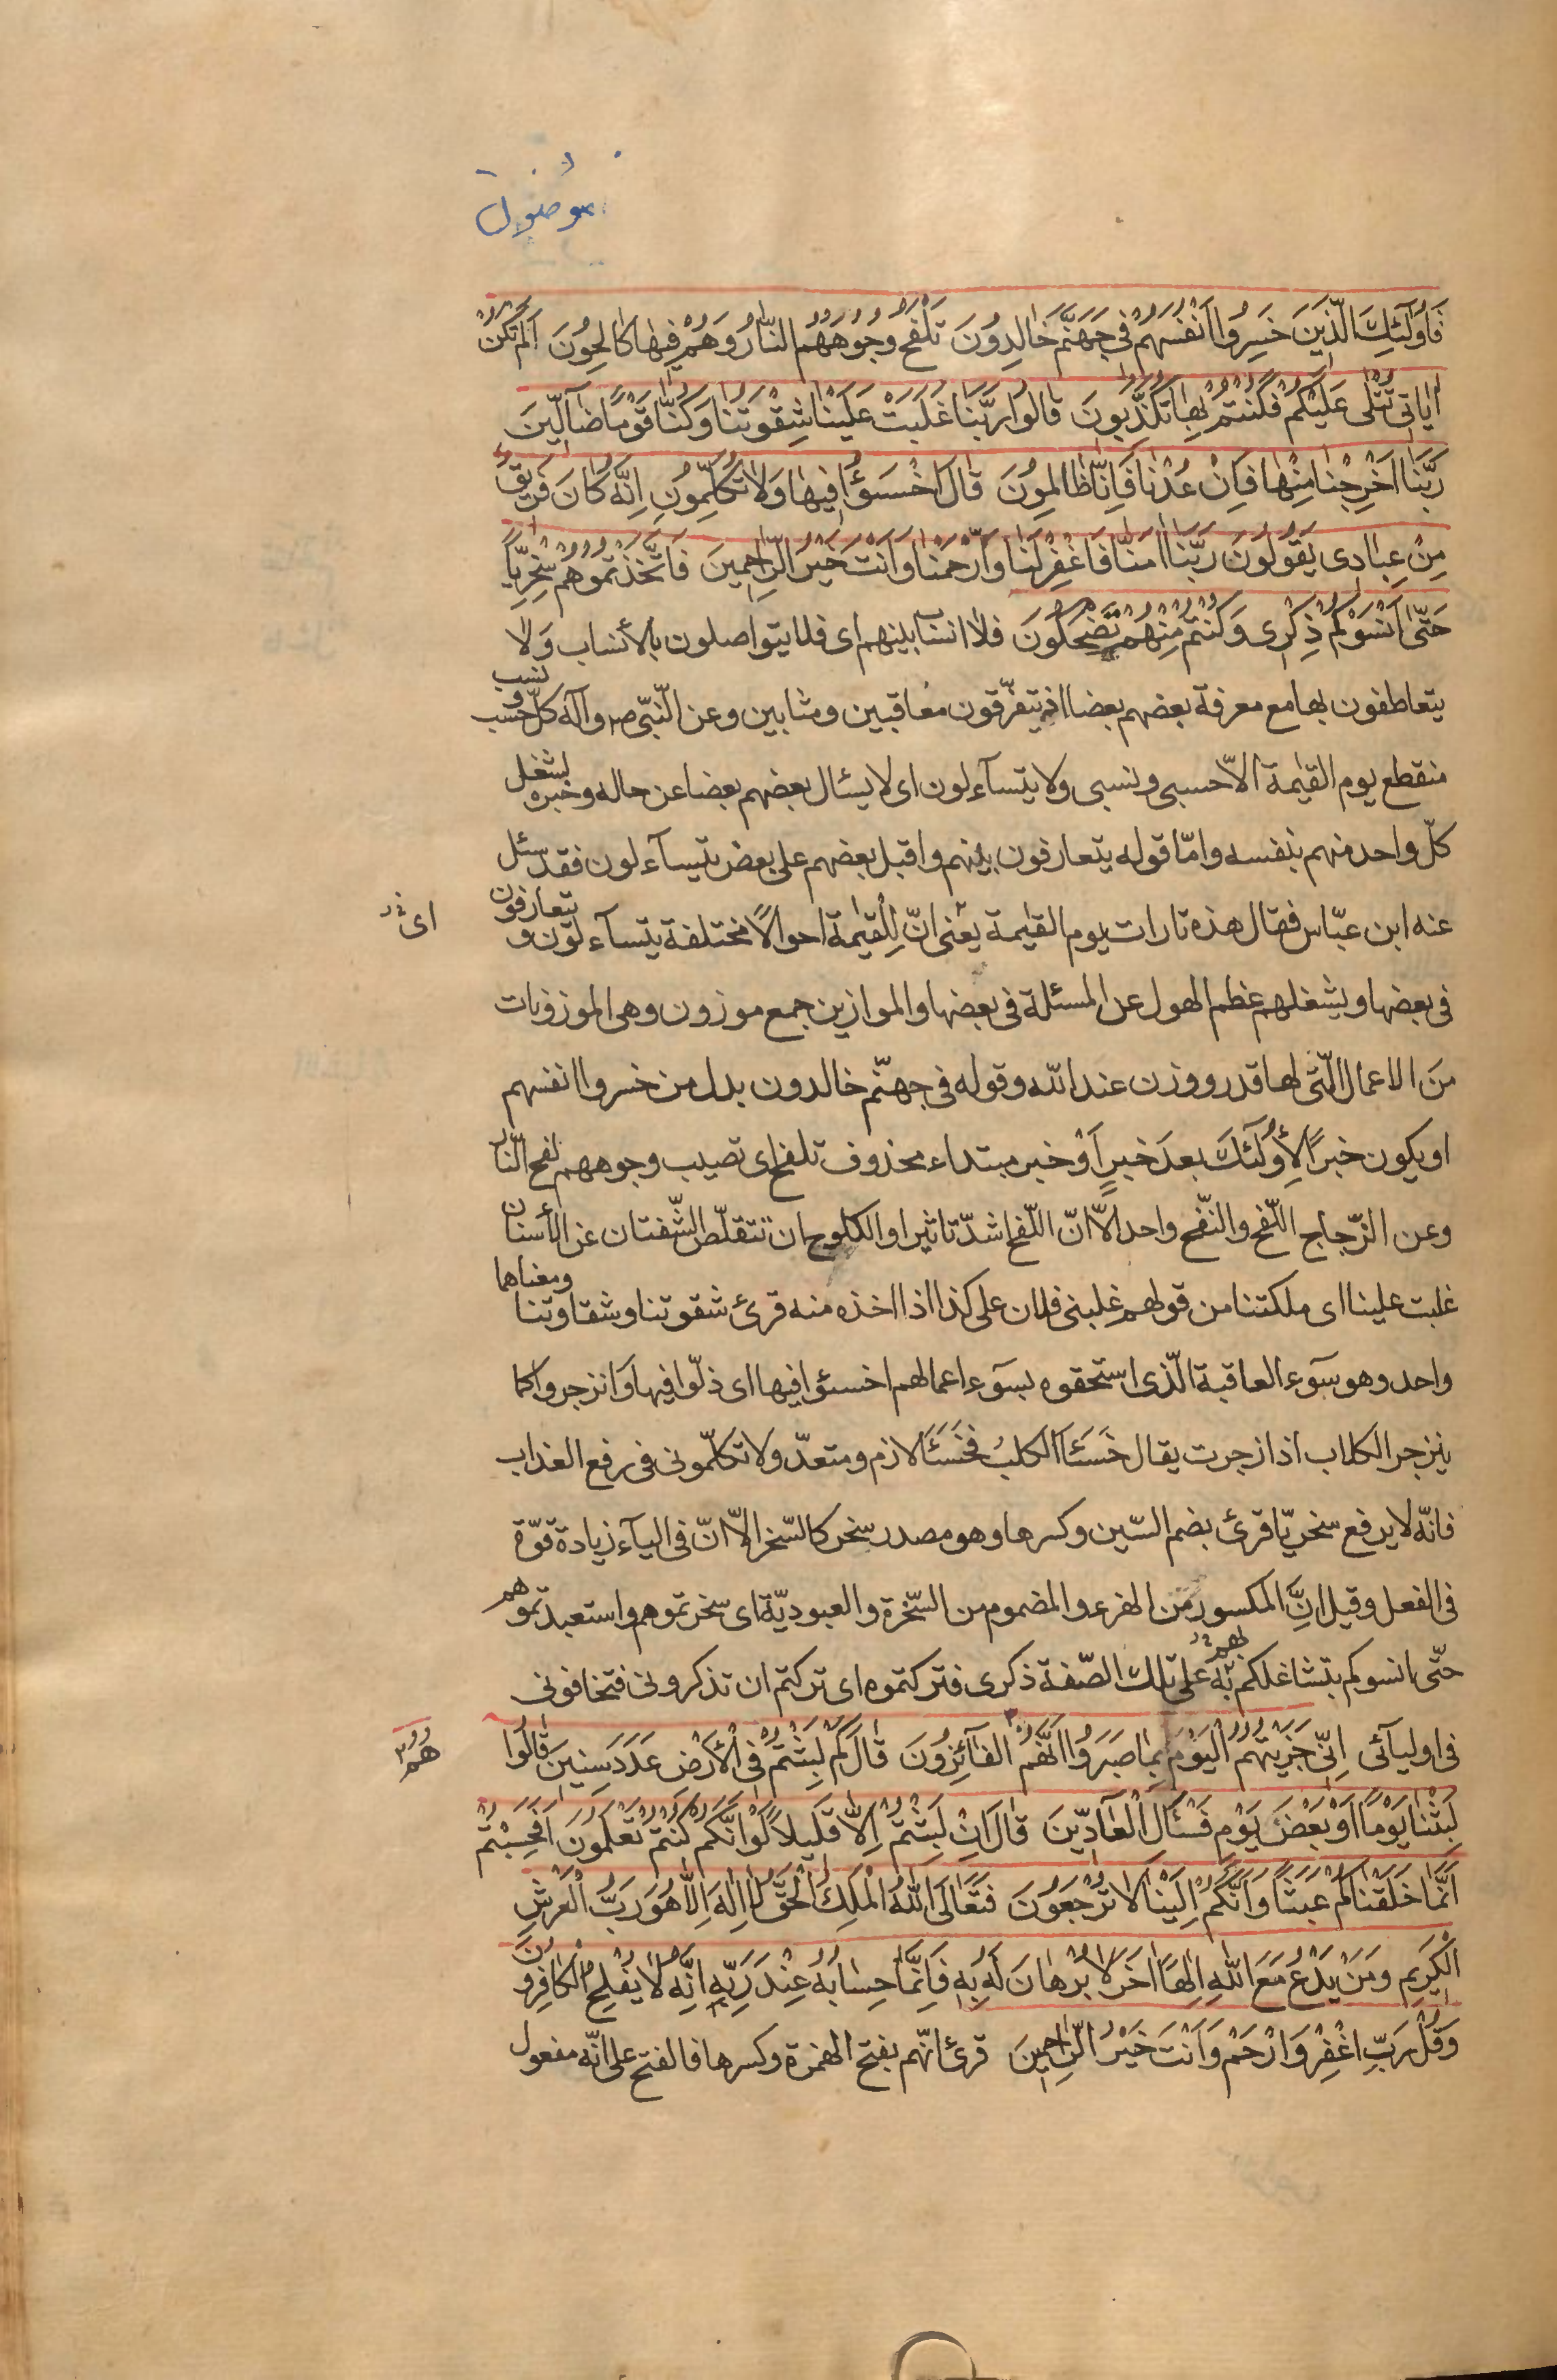 فَاُولَٓئِكَ الَّذِينَ خَسِرُوا اَنْفُسَهُمْ فِى جَهَنَّمَ خَالِدُونَ تَلْفَحُ وُجُوهَهُمُ النَّارُ وَهُمْ فِيهَا كَالِحُونَ اَلَمْ تَكُنْ
اٰيَاتِى تُتْلٰى عَلَيْكُمْ فَكُنْتُمْ بِهَا تُكَذِّبُونَ قَالُوا رَبَّنَا غَلَبَتْ عَلَيْنَا شِقْوَتُنَا وَكُنَّا قَوْمًا ضَآلِّينَ
رَبَّنَا اَخْرِجْنَا مِنْهَا فَاِنْ عُدْنَا فَاِنَّا ظَالِمُونَ قَالَ اخْسَؤُا فِيهَا وَلَا تُكَلِّمُونِ اِنَّهُ كَانَ فَرِيقٌ
مِنْ عِبَادِى يَقُولُونَ رَبَّنَا اٰمَنَّا فَاغْفِرْ لَنَا وَارْحَمْنَا وَاَنْتَ خَيْرُ الرَّاحِمِينَ فَاتَّخَذْتُمُوهُمْ سِخْرِيًّا
حَتّٰى اَنْسَوْكُمْ ذِكْرِى وَكُنْتُمْ مِنْهُمْ تَضْحَكُونَ فلا انساب بينهم اى فلا يتواصلون بالأنساب وَلا
يتعاطفون بها مع معرفة بعضهم بعضا اذ يتفرّقون معاقبين ومثابين وعن النّبىّ ص وآله كلّ حسب ونسب
منقطع يوم القيمة الّا حسبى ونسبى ولا يتسآءلون اى لا يسئال بعضهم بعضا عن حاله وخبره لشغل
كلّ واحد منهم بنفسه وامّا قوله يتعارفون بينهم واقبل بعضهم على بعض يتسآءلون فقد سئل
عنه ابن عبّاس فقال هذه تارات يوم القيمة يعنى انّ للقيمة احوالًا مختلفة يتسآءلون و يتعارفون
اى
فى بعضها ويشغلهم عظم الهول عن المسئلة فى بعضها والموازين جمع موزون وهى الموزونات
منَ الاعمال الّتى لها قدر ووزن عند الله وقوله فى جهنّم خالدون بدل من خسروا انفسهم
او يكون خبرًا لِأُولٓئكَ بعدَ خبرٍ اَوْ خبر مبتداء محذوف تلفح اى تصيب وجوههم لفح النّار
وعن الزّجاج اللّفح والنّفح واحد الّا انّ اللّفح اشدّ تاثيرا والكلوح ان تتقلّص الشّفتان عن الأسنان
غلبت علينا اى ملكتنا من قولهم غلبنى فلان على كذا اذا اخذه منه قرئ شقوتنا وشقاوتنا ومعناهما
واحد وهو سوٓء العاقبة الّذى استحقوه بسوٓء اعمالهم اخسئوا فيها اى ذلّوا فيها وانزجروا كما
ينزجر الكلاب اذا زجرت يقال خَسَئَا الكلبُ فخَسَئَا لازم ومتعدّ ولا تكلّمونى فى رفع العذاب
فانّه لا يرفع سخريّا قرئ بضم السّين وكسرها وهو مصدر سخر كالسّخر الّا انّ فى اليآء زيادة قوّة
فى الفعل وقيل انَّ المكسور من الهزء والمضموم من السّخرة والعبوديّة اى سخرتموهم واستعبدتموهم
حتّى انسوكم بتشاغلكم بهم على تلك الصّفة ذكرى فتركتموه اى تركتم ان تذكرونى فتخافونى
فى اوليآئى اِنِّى جَزَيْتُهُمُ الْيَوْمَ بِمَا صَبَرُوا اَنَّهُمْ الْفَآئِزُونَ قَالَ كَمْ لَبِثْتُمْ فِى الْأَرْضِ عَدَدَ سِنِينَ قَالُوا
هُمُ
لَبِثْنَا يَوْمًا اَوْ بَعْضَ يَوْمٍ فَسْئَلِ الْعَآدِّينَ قَالَ اِنْ لَبِثْتُمْ اِلَّا قَلِيلًا لَوْ اَنَّكُمْ كُنْتُمْ تَعْلَمُونَ اَفَحَسِبْتُمْ
اَنَّمَا خَلَقْنَاكُمْ عَبَثًا وَاَنَّكُمْ اِلَيْنَا لَا تُرْجَعُونَ فَتَعَالَى اللّٰهُ الْمَلِكُ الْحَقُّ لَا اِلٰهَ اِلَّا هُوَ رَبُّ الْعَرْشِ
الْكَرِيمِ وَمَنْ يَدْعُ مَعَ اللّٰهِ اِلٰهًا اٰخَرَ لَا بُرْهَانَ لَهُ بِهِ فَاِنَّمَا حِسَابُهُ عِنْدَ رَبِّهِ اِنَّهُ لَا يُفْلِحُ الْكَافِرُونَ
وَقُلْ رَبِّ اغْفِرْ وَارْحَمْ وَاَنْتَ خَيْرُ الرَّاحِمِينَ قرئ انّهم بفتح الهمزة وكسرها فالفتح على انّه مفعول